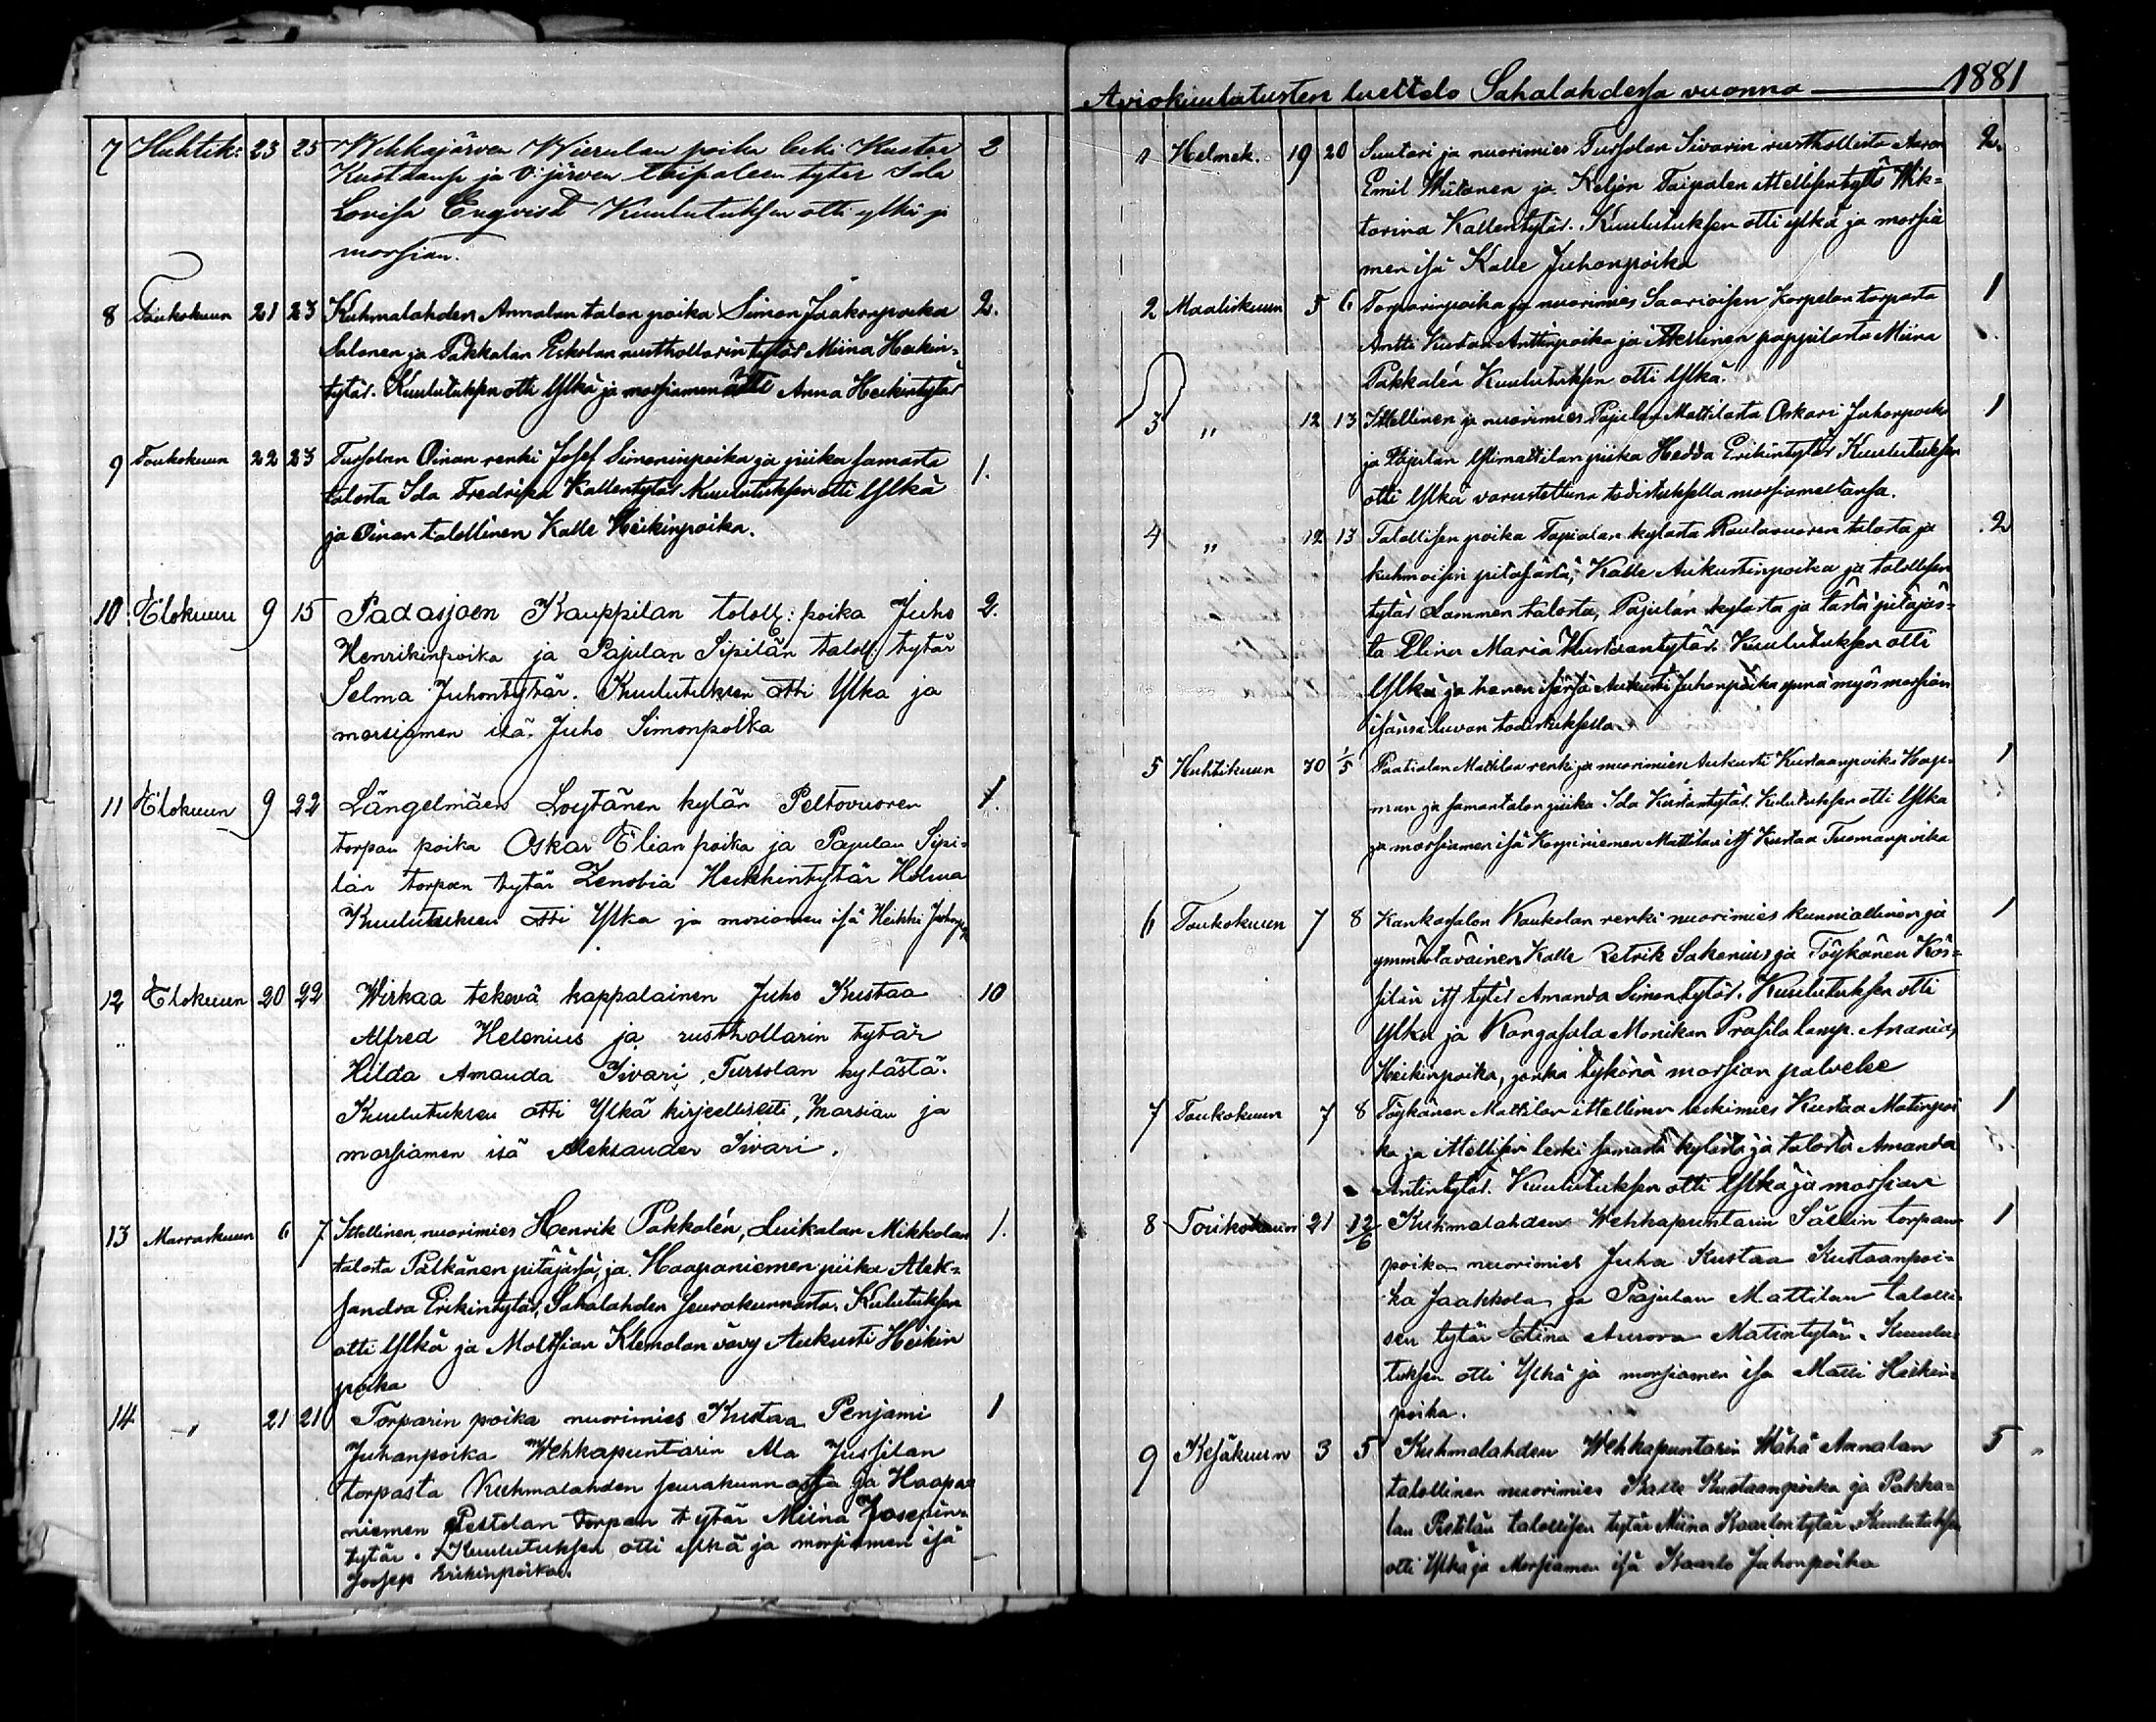 7 Huhtik: 23 25 Wehkajärven Wierulan poika leski Kustaa 2
Kustaanp ja V:järven Taipaleen tytär Ida
Lovisa Enqvist Kuulutuksen otti ylkä ja
morsian.
8 Toukokuun 21 23 Kuhmalahden Annalan talon poika Simon Jaakonpoika 2.
Salonen ja Pakkalan Eskolan rusthollarin tytär Miina Heikin=
tytär. Kuulutuksen otti Ylkä ja morsiamen äiti Anna Heikintytär
9 Toukokuun 22 23 Tursolan Oinan renki Josef Simoninpoika ja piika samasta 1.
talosta Ida Fredrika Kallentytär Kuulutuksen otti Ylkä
ja Oinan talollinen Kalle Heikinpoika.
10 Elokuun 9 15 Padasjoen Kauppilan taloll: poika Juho 2.
Henrikinpoika ja Pajulan Sipilän taloll: tytär
Selma Juhontytär. Kuulutuksen otti Ylkä ja
morsiamen isä. Juho Simonpoika
11 Elokuun 9 22 Längelmäen Löytänen kylän Peltovuoren 1.
torpan poika Oskar Elianpoika ja Pajulan Sipi=
län torpan tytär Zenobia Heikkintytär Holma
Kuulutuksen otti Ylkä ja morsiamen isä Heikki
12 Elokuun 20 22 Wirkaa tekevä kappalainen Juho Kustaa 10
Alfred Helenius ja rusthollarin tytär
Hilda Amanda Iivari, Tursolan kylästä.
Kuulutuksen otti Ylkä kirjeellisesti, morsian ja
morsiamen isä Aleksander Iivari.
13 Marraskuun 6 7 Ittellinen, nuorimies Henrik Pakkalén, Luikalan Mikkolan 1.
talosta Pälkänen pitäjäsä, ja Haapaniemen piika Alek=
sandra Erikintytär, Sahalahden seurakunnasta. Kulutuksen
otti Ylkä ja Moltsian Klemolan vävy Aukusti Heikin
poika
14 -"- 21 21 Torparin poika nuorimies Kustaa Penjami 1
Juhanpoika Wehkapuntarin Ala Jussilan
torpasta Kuhmalahden seurakunnasta ja Haapa=
niemen Pettolan torpan tytär Miina Josepin=
tytär. Kuulutuksen otti ylkä ja morsiamen isä
Joosep Erikinpoika.
Aviokuulutusten luettelo Sahalahdessa vuonna 1881
1 Helmik. 19 20 Suutari ja nuorimies Tursolan Iivarin rusthollista Aaron 2.
Emil Wiitanen ja Keljon Taipalen ittellisen tytär Wik=
torina Kallentytär. Kuulutuksen otti ylkä ja morsia
men isä Kalle Juhonpoika
2 Maaliskuun 5 6 Torparinpoika ja nuorimies Saarioisen Korpelan torpasta 1
Antti Kustaa Anttinpoika ja Ittellinen pappilasta Miina
Pakkalén Kuulutuksen otti Ylkä.
3 " 12 13 Ittellinen ja nuorimies Pajulan Mattilasta Oskari Juhonpoika 1
ja Pajulan Ylimattilan piika Hedda Erikintytär Kuulutuksen
otti Ylkä varustettuna todistuksella morsiameltansa.
4 " 12 13 Talollisen poika Tapialan kylasta Rautavuoren talosta ja 2
kuhmoisin pitajästä, Kalle Aukustinpoika ja talollisen
tytär Lammen talosta, Pajulan kylasta ja tästä pitäjäs=
ta Elina Maria Kustaantytär. Kuulutuksen otti
Ylkä ja hänen isänsä Aukusti Juhonpoika ynnä myös morsian
isänsä luvan todistuksella.
5 Huhtikuun 30 1/5 Paatialan Mattilan renki ja nuorimies Aukusti Kustaanpoika Hag= 1
man ja saman talon piika Ida Kustantytär. Kulutuksen otti Ylkä
ja morsiamen isä Korpiniemen Mattilan itl Kustaa Tuomanpoika
6 Toukokuun 7 8 Kankasalon Kaukolan renki nuorimies kunniallinen ja 1
ymmärtäväinen Kalle Retrik Sakenius ja Töykänen Kös=
silän itl tytär Amanda Simontytär. Kuulutuksen otti
Ylkä ja Kangasala Monikan Prasila lamp. Anania
Heikinpoika, jonka tykönä morsian palvelee
7 Toukokuun 7 8 Töykänen Mattilan ittellinen leskimies Kustaa Matinpoi 1
ka ja ittellisen leski samasta kylästä ja talosta Amanda
Antintytär. Kuulutuksen otti Ylkä ja morsian
8 Toukokuun 21 12/6 Kuhmalahden Wehkapuntarin Sällin torpan 1
poika nuorimies Juha Kustaa Kustaanpoi=
ka Jaakkola ja Pajulan Mattilan talolli
sen tytär Elina Aurora Matintytär. Kuulu
tuksen otti Ylkä ja morsiamen isä Matti Heikin=
poika.
9 Kesäkuun 3 5 Kuhmalahden Wehkapuntarin Wähä Annalan 5
talollinen nuorimies Kalle Kustaanpoika ja Pakka=
lan Pietilän talollisen tytär Miina Kaarlontytär. Kuulutuksen
otti Ylkä ja Morsiamen isä Kaarlo Juhonpoika